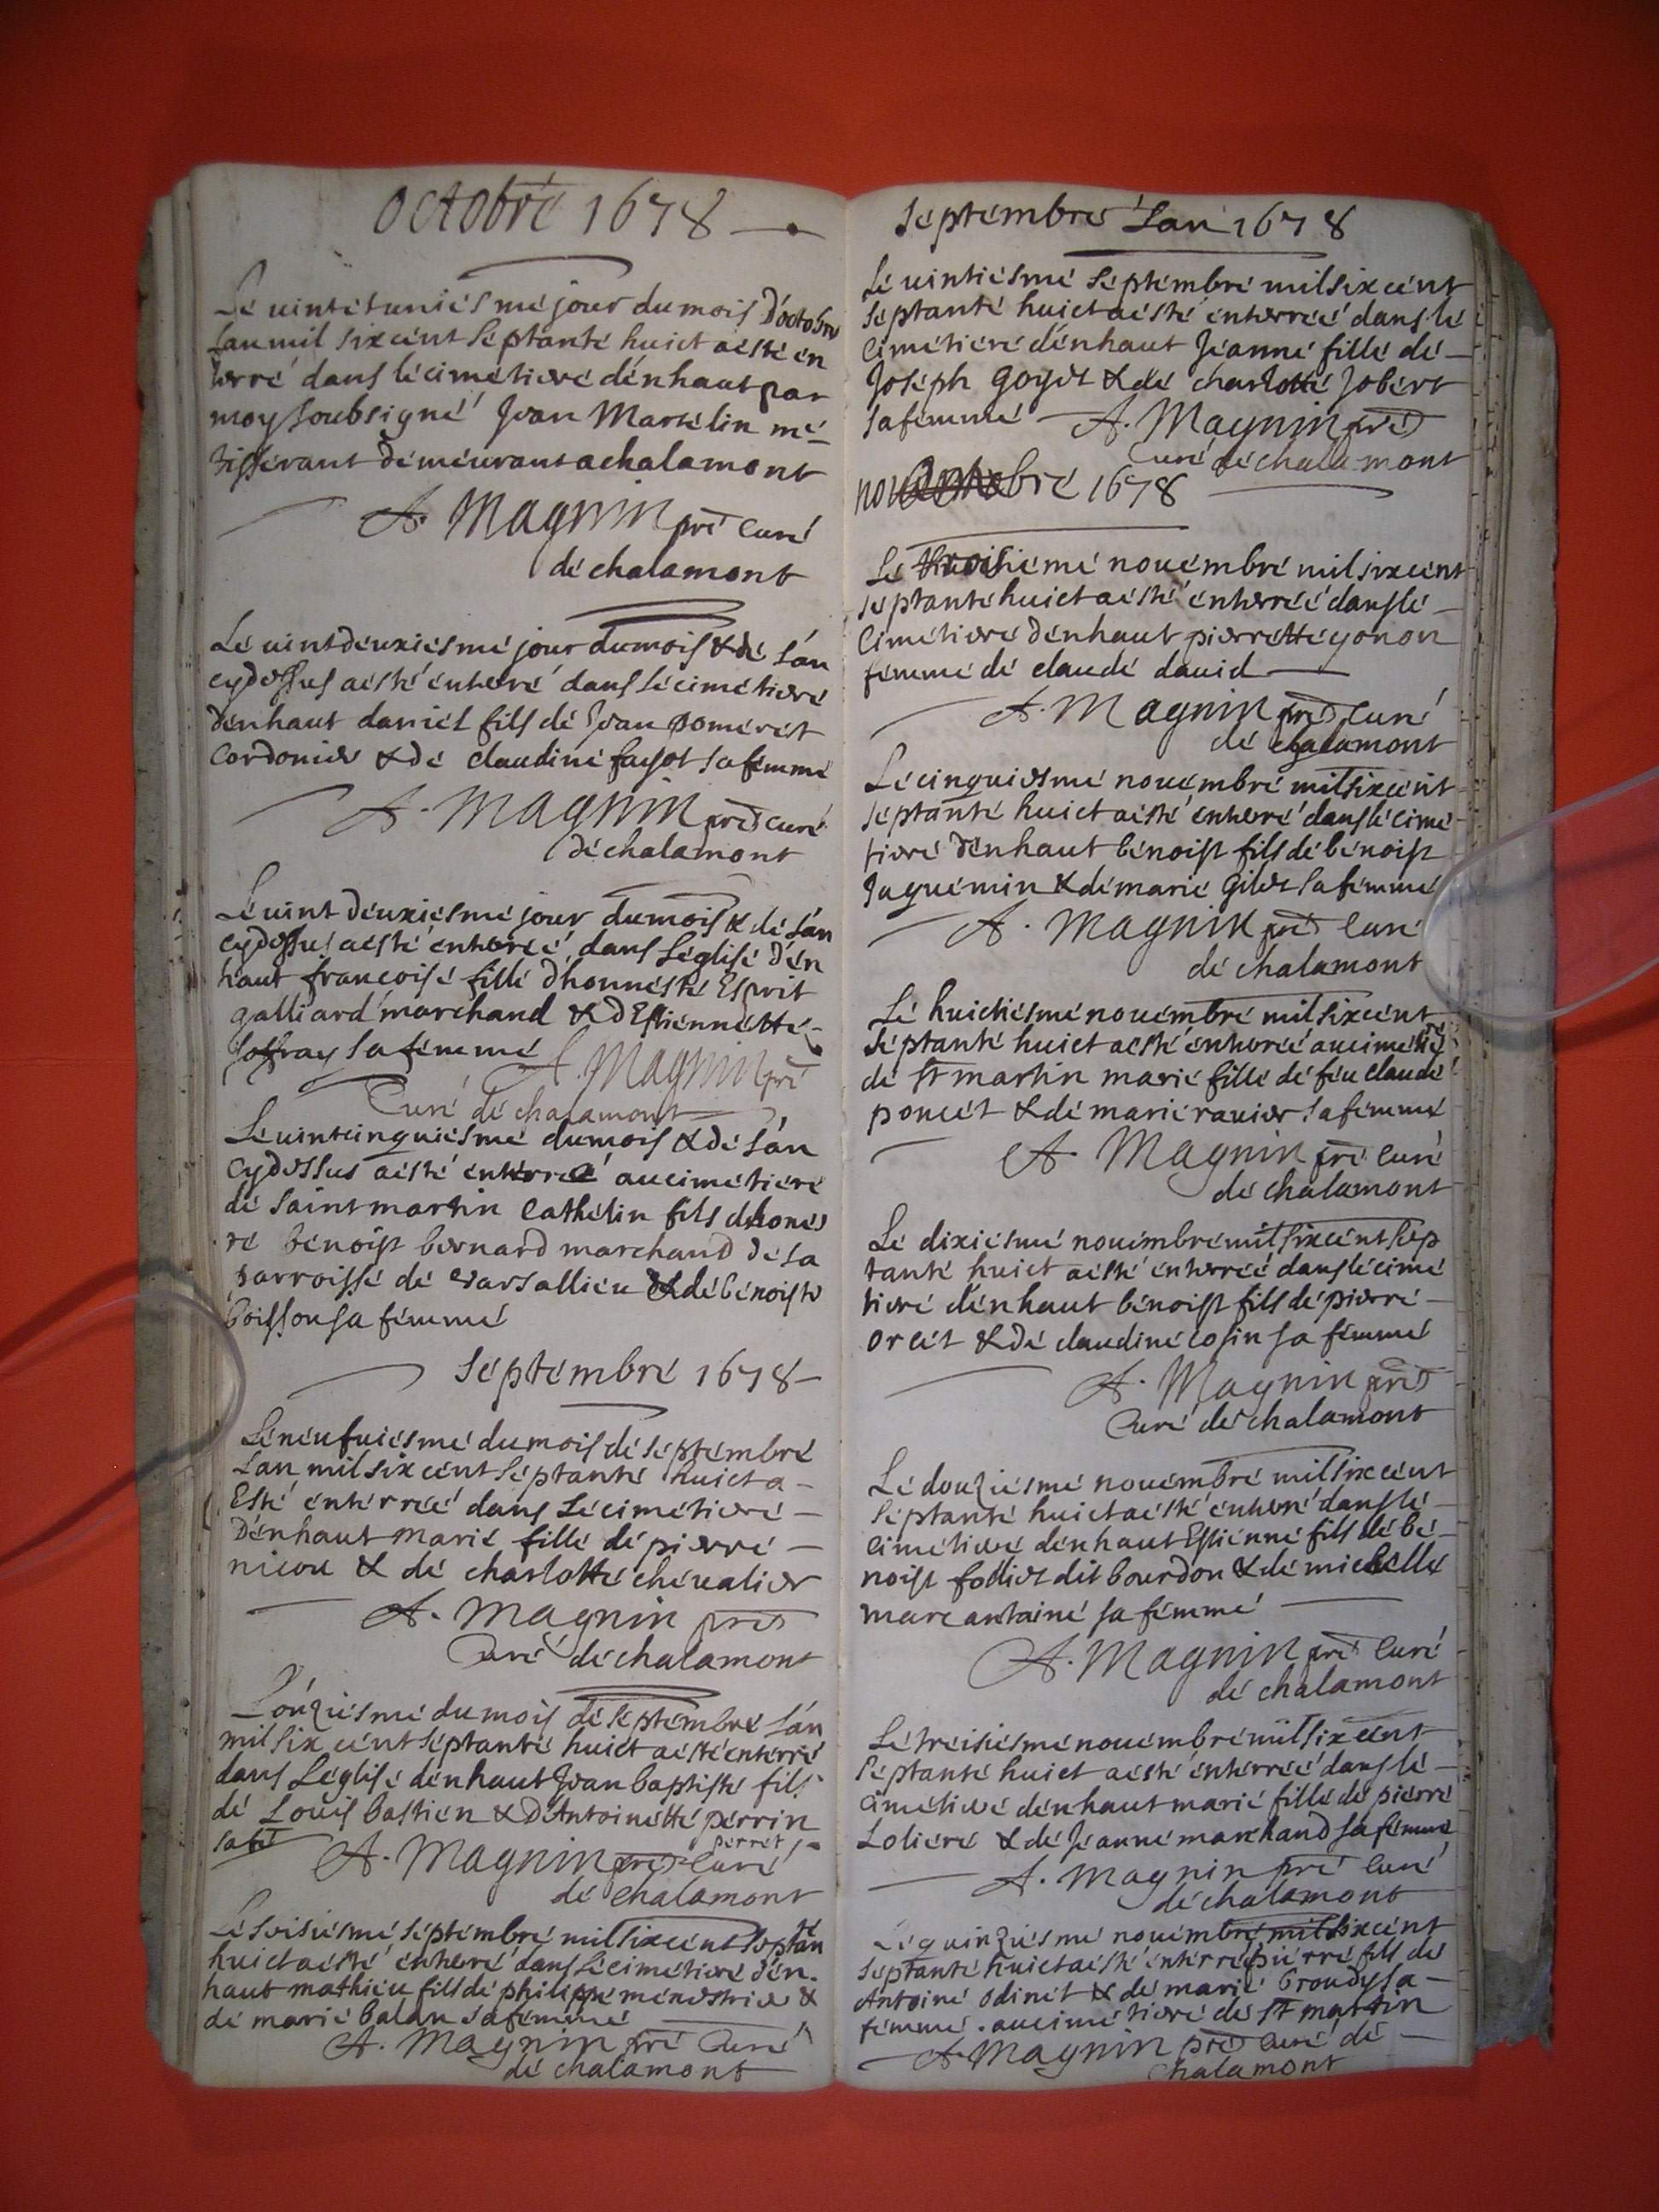 octobre 1678
Le vint et uniesme jour du mois d'octobre
lan mil six cent septante huict a esté en
terré dans le cimetiere denhaut par
moy soubsigné Jean Marcelin me
tisserant demeurant a chalamont
A. Magnin pre curé
de chalamont
Le vint deuxiesme jour du mois & de lan
cydessus a esté enterré dans le cimetiere
denhaut daniel fils de Jean pomeret
cordonier & de claudine fayot sa femme
A. Magnin pre curé
de chalamont
Le vint deuxiesme jour du mois & de lan
cydessus a esté enterrée dans Leglise den
haut francoise fille dhonneste Esprit
galliard marchand & dEstiennette
Joffray sa femme A. Magnin pre
Curé de chalamont
Le vintcinquiesme du mois & de lan
cydessus a esté enterré au cimetiere
de saint martin Cathelin fils dhones
te benoist bernard marchand de la
parroisse de Varsallieu & de benoiste
boisson sa femme
septembre 1678
Le neufuiesme du mois de septembre
Lan mil six cent septante huict a
Esté enterrée dans Le cimetiere
Denhaut marie fille de pierre
nicou & de charlotte chevalier
A. Magnin pre
Curé de chalamont
L'ouziesme du mois de septembre lan
mil six cent septante huict a esté enterré
dans Leglise denhaut Jean baptiste fils
de Louis bastien & d'Antoinette perrin
sa fe perret
A. Magnin pre Curé
de chalamont
Le seisiesme septembre mil six cent septante
huict a esté enterré dans le cimetiere den
haut mathieu fils de philippe menestrier &
de marie balan sa femme
A. Magnin pre Curé
de chalamont
septembre Lan 1678
Le vintiesme septembre mil six cent
septante huict a esté enterrée dans le
cimetiere denhaut Jeanne fille de
Joseph goyet & de charlotte Jobert
sa femme A. Magnin pre
Curé de chalamont
novembre 1678
Le troisieme novembre mil six cent
septante huict a esté enterrée dans le
Cimetiere denhaut pierrette yonon
femme de claude david
A. Magnin pre Curé
de chalamont
Le cinquiesme novembre mil six cent
septante huict a esté enterré dans le cime
tiere denhaut benoist fils de benoist
Jaquemin & de marie Gilet sa femme
A. Magnin pre Curé
de chalamont
Le huictiesme novembre mil six cent
septante huict a esté enterrée au cimetiere
de st martin marie fille de feu claude
poncet & de marie ravier sa femme
A. Magnin pre Curé
de chalamont
Le dixiesme novembre mil six cent sep
tante huict a esté enterrée dans le cime
tiere denhaut benoist fils de pierre
orcet & de claudine cosin sa femme
A. Magnin pre
Curé de chalamont
Le douziesme novembre mil six cent
septante huict a esté enterré dans le
cimetiere denhaut Estienne fils de be
noist fodier dit bourdon & de michelle
marcantaine sa femme
A. Magnin pre Curé
de chalamont
Le treisiesme novembre mil six cent
septante huict a esté enterrée dans le
cimetiere denhaut marie fille de pierre
Loliere & de Jeanne marchand sa femme
A. Magnin pre Curé
de chalamont
Le quinziesme novembre mil six cent
septante huict a esté enterré pierre fils de
Antoine odinet & de marie broudy sa
femme. au cimetiere de st martin
A. Magnin pre Curé de
chalamont